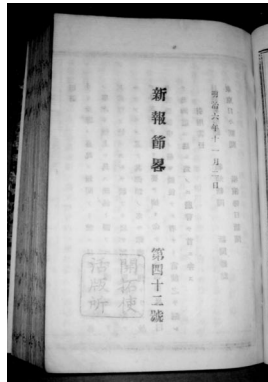 明治六年十一月二日
新報節畧
第四十二號
開拓使
活版所